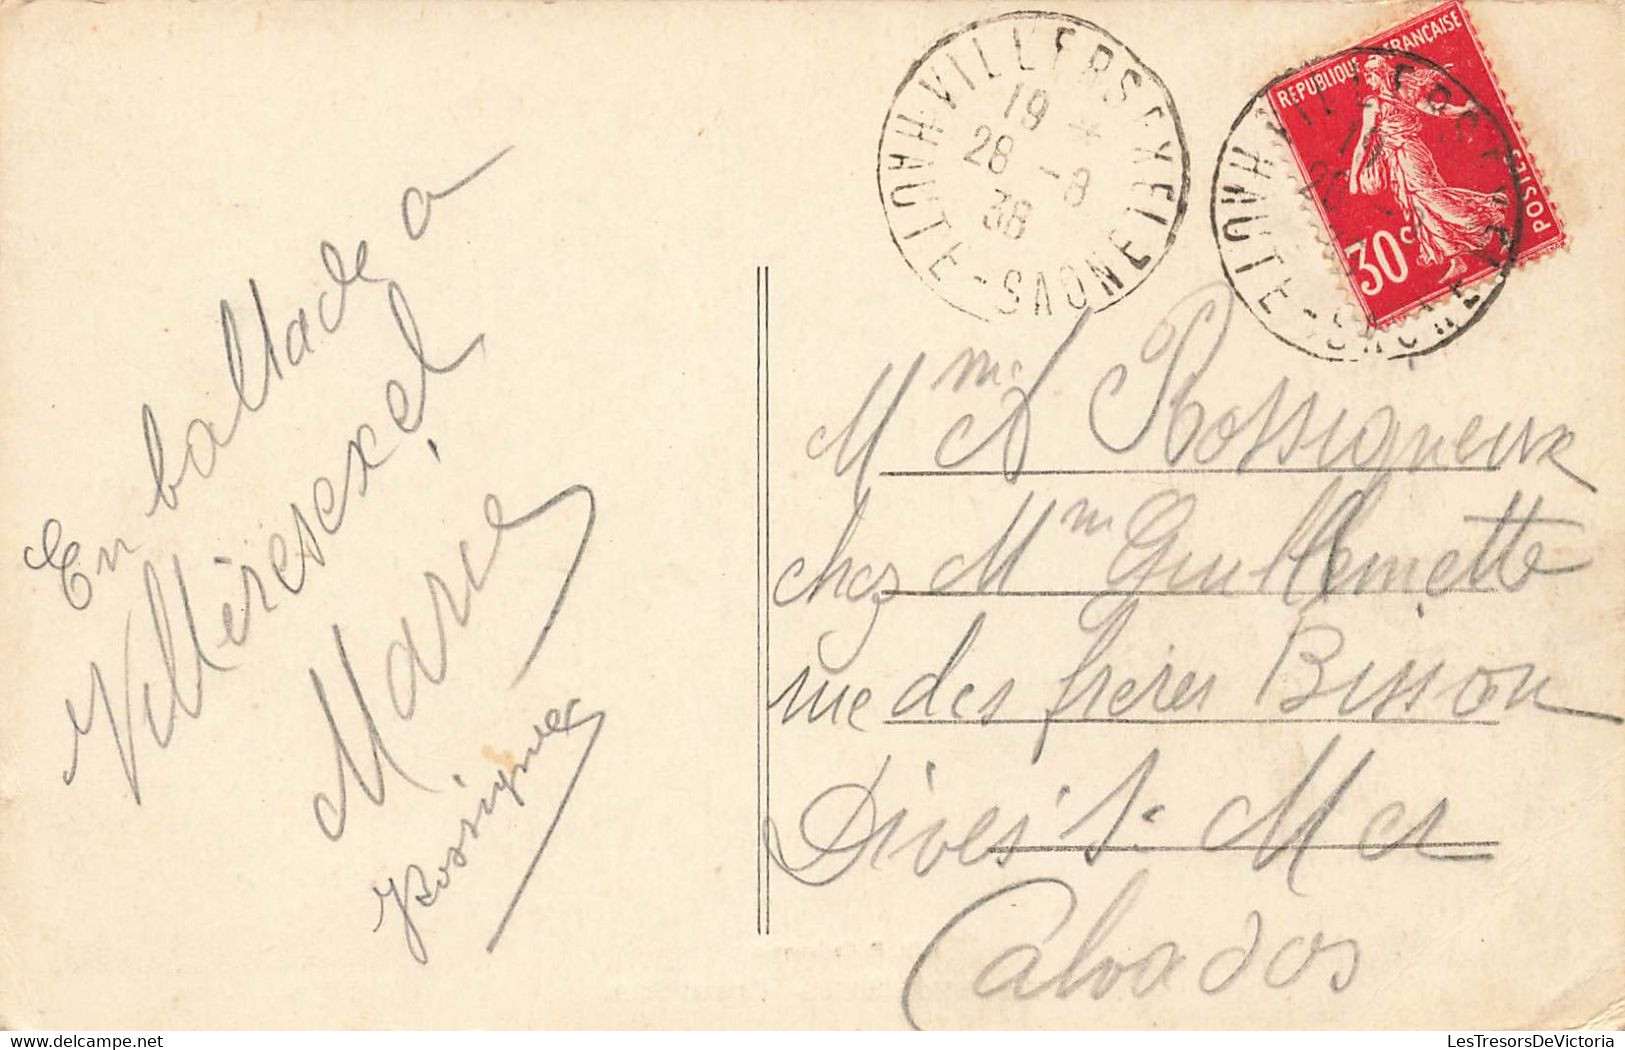 VILLERSEXEL
HAUTE-SAONE
19 *
28 -8
38
REPUBLIQUE FRANÇAISE
POSTES
30c
En ballade a
Villersexel
Marie
Rossigneux
Mme A Rossigneux
chez Mm Guillemette
rue des frères Bisson
Dives s. Mer
Calvados
www.delcampe.net
LesTresorsDeVictoria